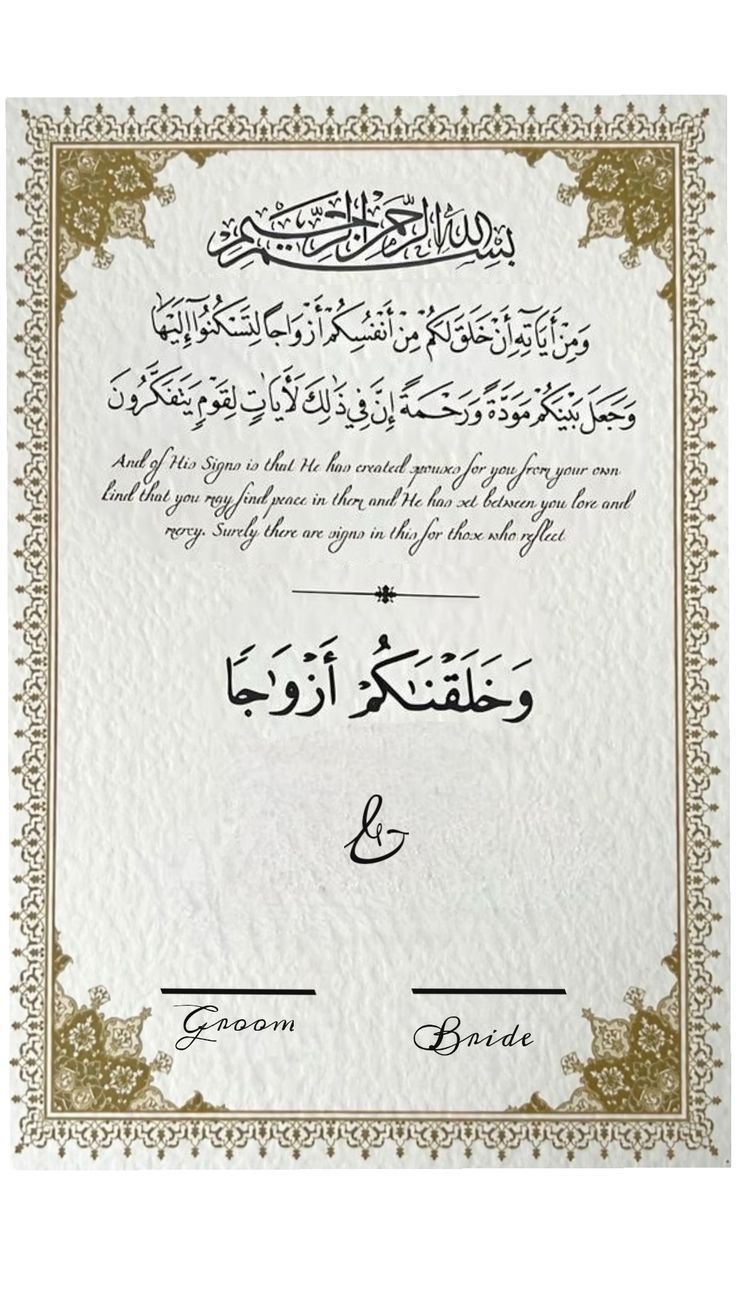 بسم الله الرحمن الرحيم
وَمِنْ أَيَاتِهِ أَنْ خَلَقَ لَكُمْ مِنْ أَنْفُسِكُمْ أَزْوَاجًا لِتَسْكُنُوا إِلَيْهَا
وَجَعَلَ بَيْنَكُمْ مَوَدَّةً وَرَحْمَةً إِنَّ فِي ذَٰلِكَ لَأَيَاتٍ لِقَوْمٍ يَتَفَكَّرُونَ
And of His Signs is that He has created spouses for you from your own
kind that you may find peace in them and He has set between you love and
mercy. Surely there are signs in this for those who reflect
وَخَلَقْنَاكُمْ أَزْوَاجًا
&
Groom Bride